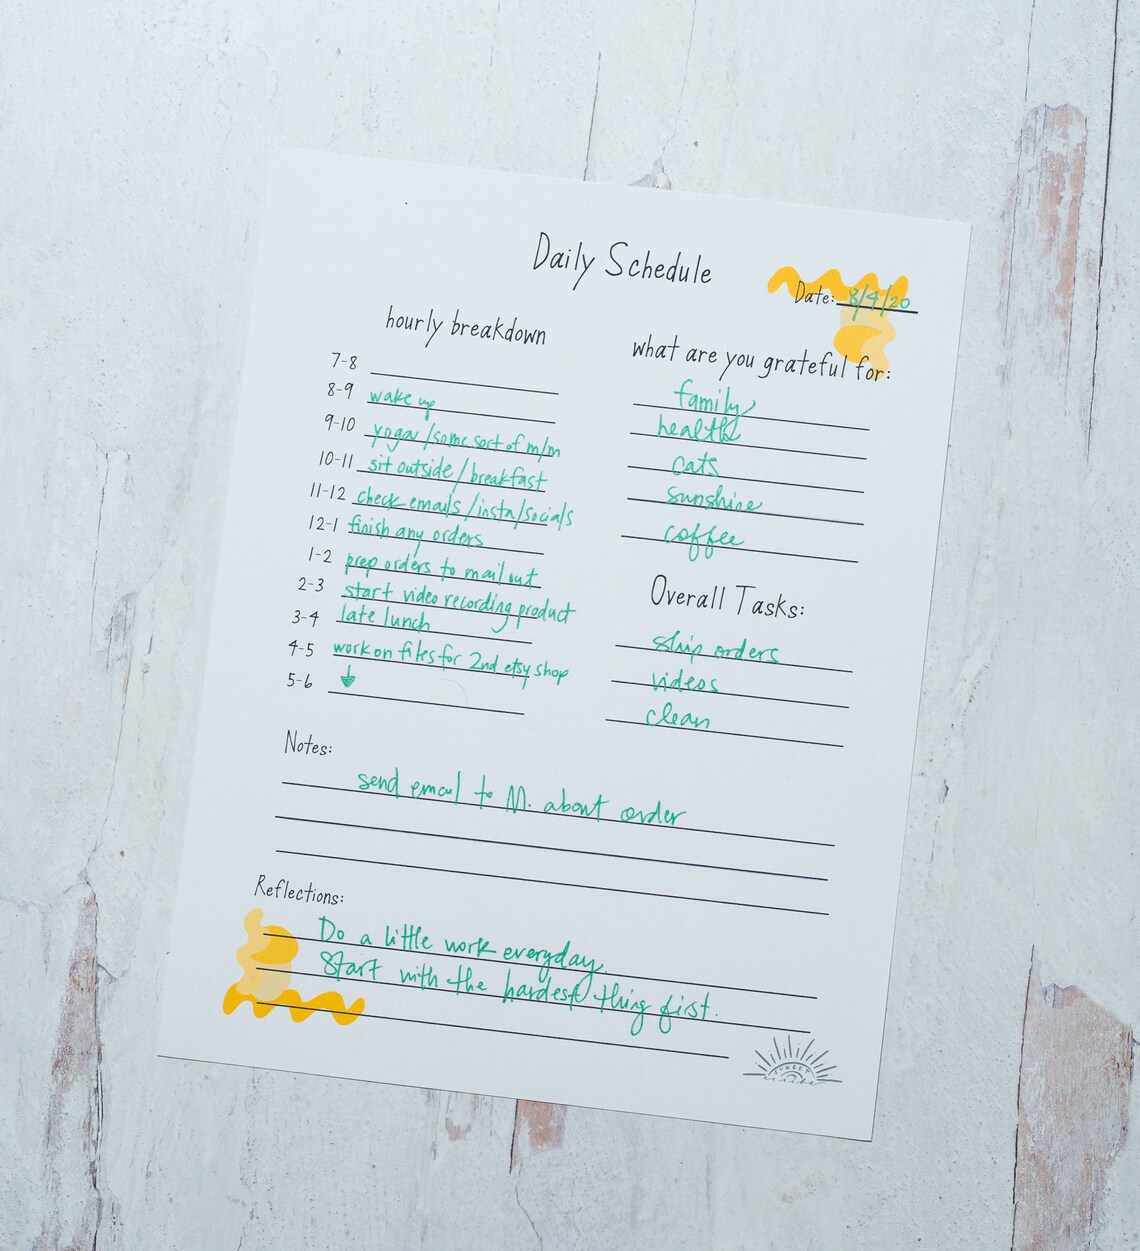 Daily Schedule
Date: 8/4/20
hourly breakdown
7-8
8-9 wake up
9-10 yoga/some sort of m/m
10-11 sit outside/breakfast
11-12 check emails/insta/socials
12-1 finish any orders
1-2 prep orders to mail out
2-3 start video recording product
3-4 late lunch
4-5 work on files for 2nd etsy shop
5-6 ↓
what are you grateful for:
family
health
cats
sunshine
coffee
Overall Tasks:
ship orders
videos
clean
Notes:
send email to M. about order
Reflections:
Do a little work everyday.
Start with the hardest thing first.
SUNSET